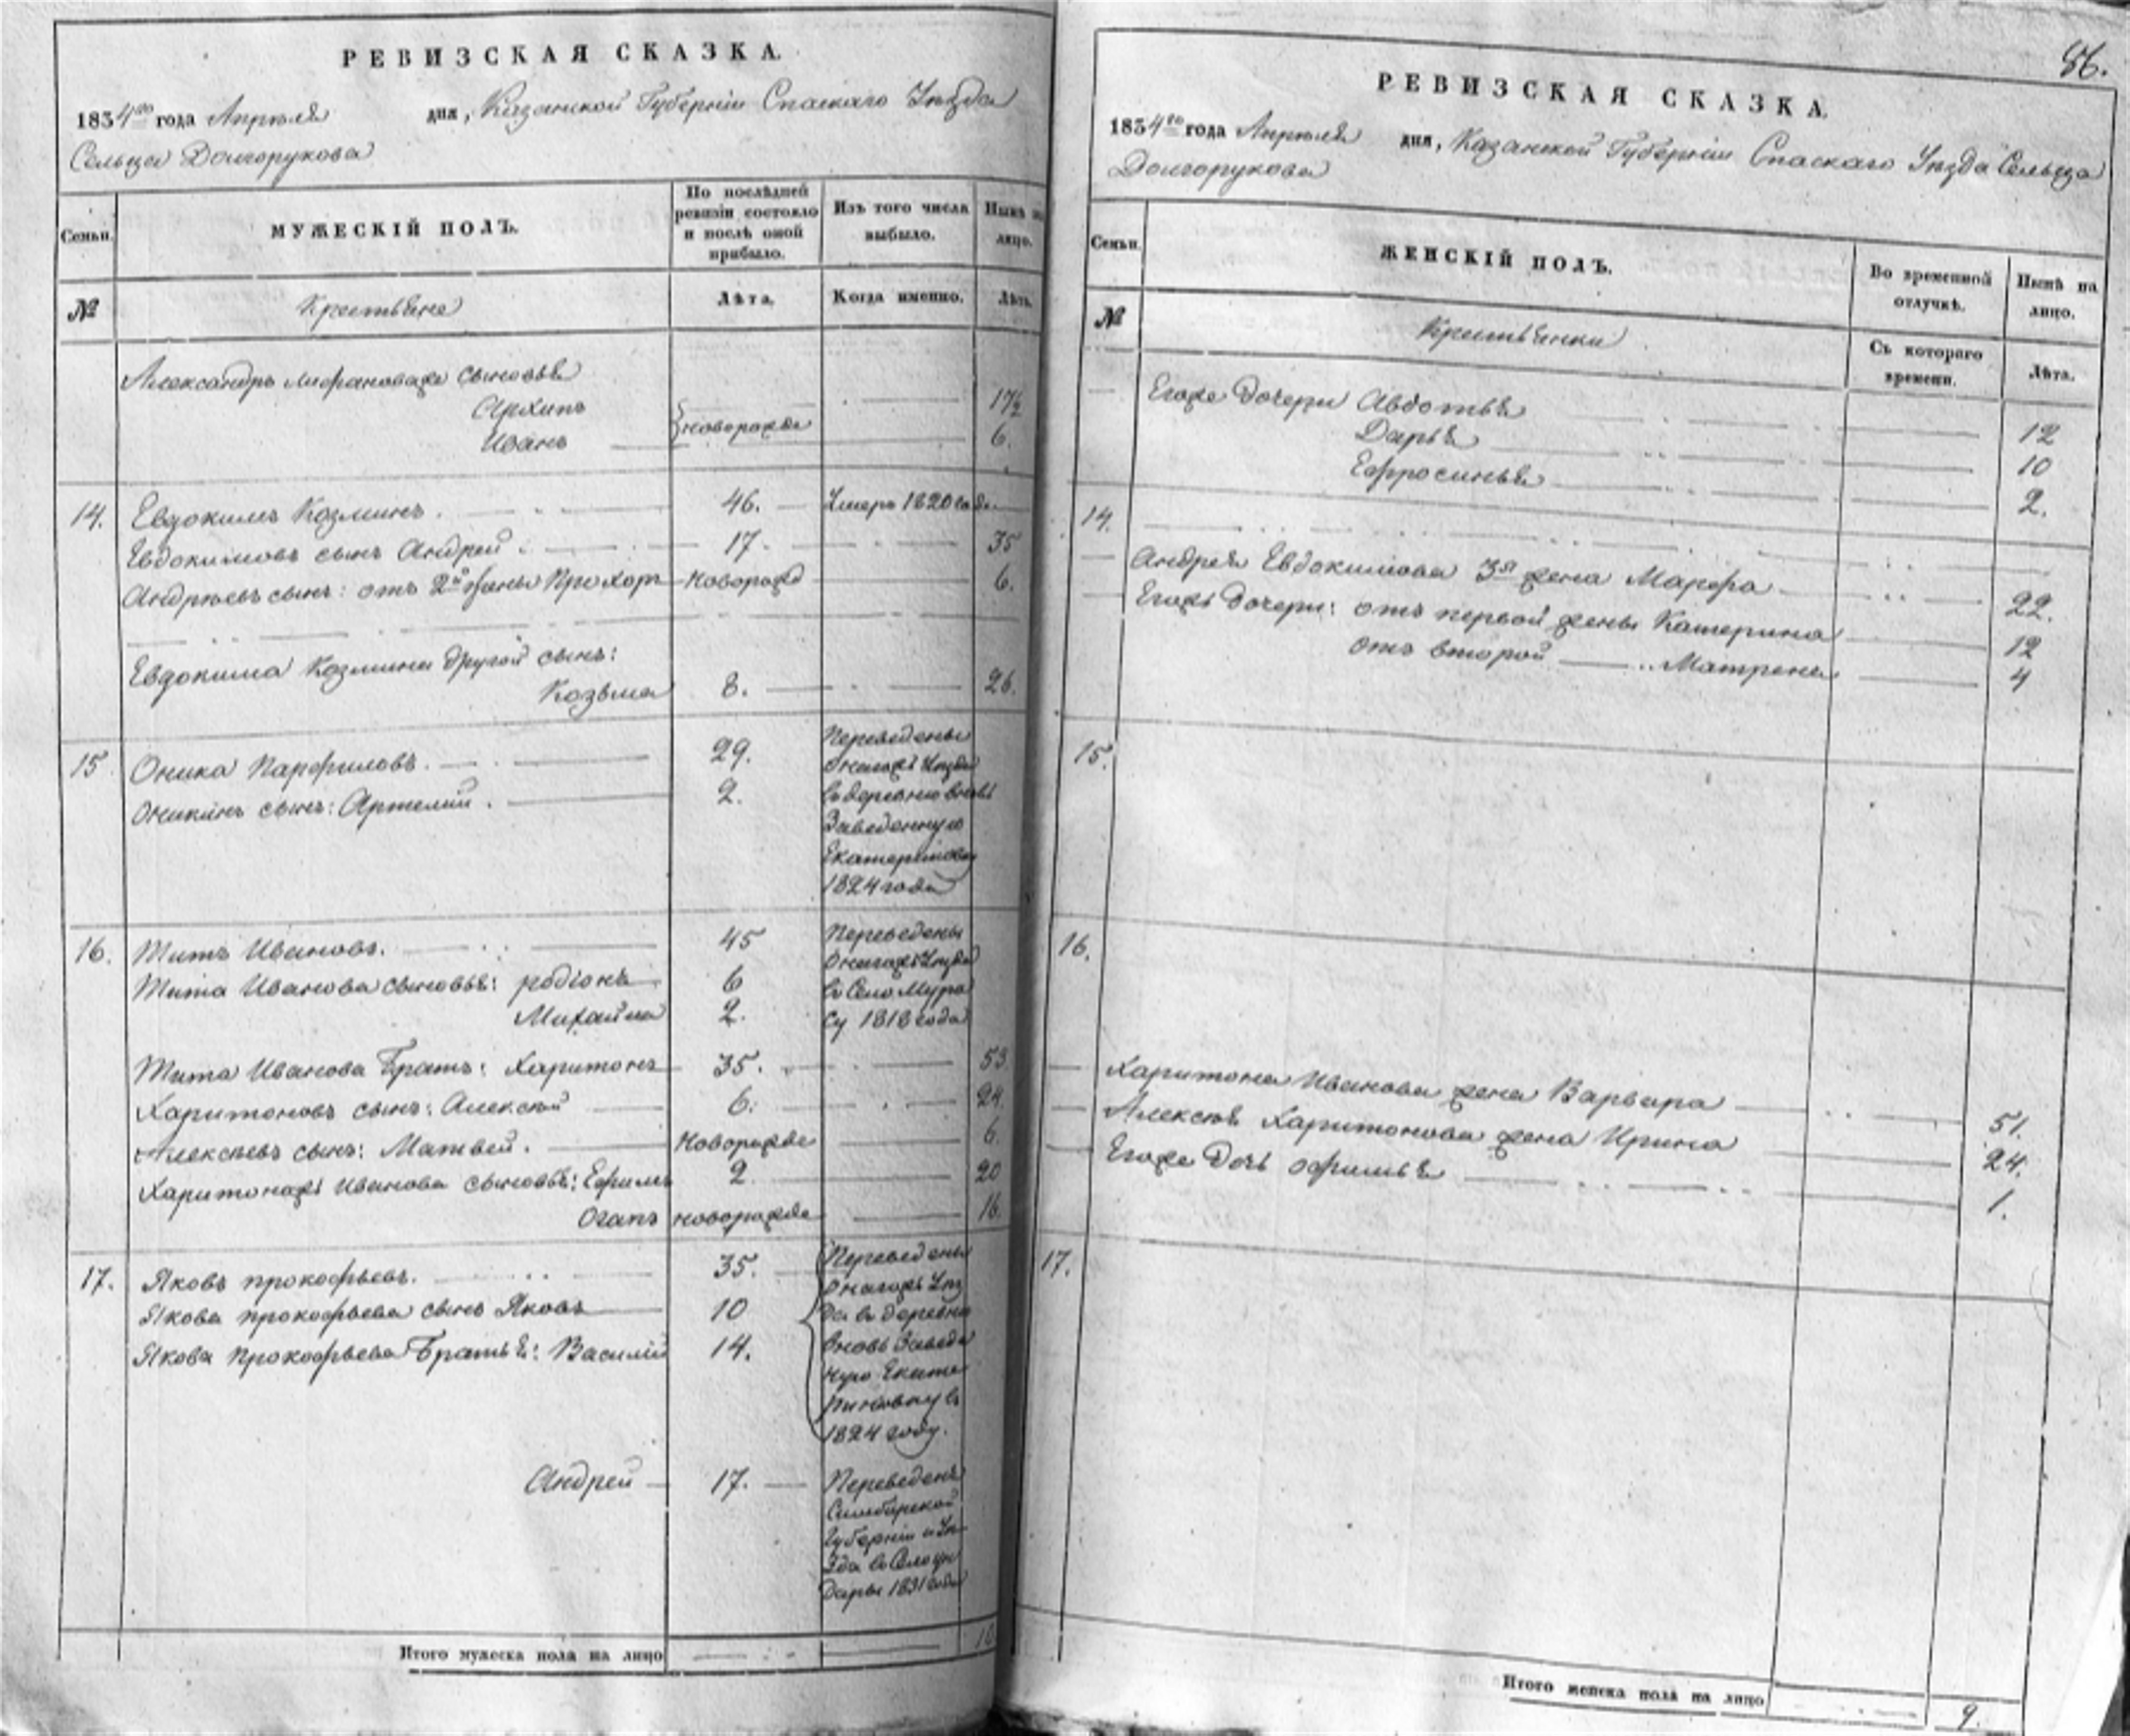 РЕВИЗСКАЯ СКАЗКА.
1834го года Апреля дня, Казанской Губерніи Спаскаго Уѣзда
Сельца Долгорукова
Семьи.
МУЖЕСКІЙ ПОЛЪ.
По послѣдней ревизіи состояло и послѣ оной прибыло.
Изъ того числа выбыло.
Нынѣ на лицо.
№
Крестьяне
Лѣта.
Когда именно.
Лѣта.
Александръ сыновья
Архипъ 17½
Иванъ новорожде 6.
14. Евдокимъ Козминъ. 46. Умеръ 1820 года
Евдокимовъ сынъ Андрей. 17. 35
Андрѣевъ сынъ: отъ 2й жены Прохоръ Новорожд 6.
Евдокима Козмина другой сынъ:
Козьма 8. 26.
15 Оника Парфиловъ. 29.
Оникинъ сынъ: Артемий. 2.
Переведены
онагожъ уѣзда
въ деревню вновь
Заведенную
Екатериновку
1824 года
16. Титъ Ивановъ. 45
Тита Иванова сыновья: родіонъ 6
Михайла 2.
Переведены
Онагожъ Уѣзда
въ Село Мура
су 1818 года
Тита Иванова Братъ: Харитонъ 35. 53
Харитоновъ сынъ: Алексѣй 6. 24.
Алексѣевъ сынъ: Матвей. Новорожде 6.
Харитонажъ Иванова сыновья: Ефимъ 2. 20
Огапъ новорожде 16.
17. Яковъ прокофьевъ. 35.
Якова прокофьева сынъ Яковъ 10
Якова Прокофьева Братья: Василій 14.
Переведены
Онагожъ Уѣз
да въ деревню
вновь Заведе
ную Екате
риновку въ
1824 году.
Андрей 17.
Переведенъ
Симбирской
Губерніи и Уѣ
зда въ Село
1831 года
Итого мужеска пола на лицо
86.
РЕВИЗСКАЯ СКАЗКА.
1834го года Апреля дня, Казанской Губерніи Спаскаго Уѣзда Сельца
Долгорукова
Семьи.
ЖЕНСКІЙ ПОЛЪ.
Во временной отлучкѣ.
Нынѣ на лицо.
№
Крестьянки
Съ котораго времени.
Лѣта.
Егоже дочери Авдотья 12
Дарья 10
Ефросинья 2.
14.
Андрея Евдокимова 3я жена Марфа 22.
Егожъ дочери: отъ первой жены Катерина 12
отъ второй Матрена 4
15.
16.
Харитона Иванова жена Варвара 51.
Алексѣя Харитонова жена Ирина 24.
Егоже дочь офимья 1.
17.
Итого женска пола на лицо 9.